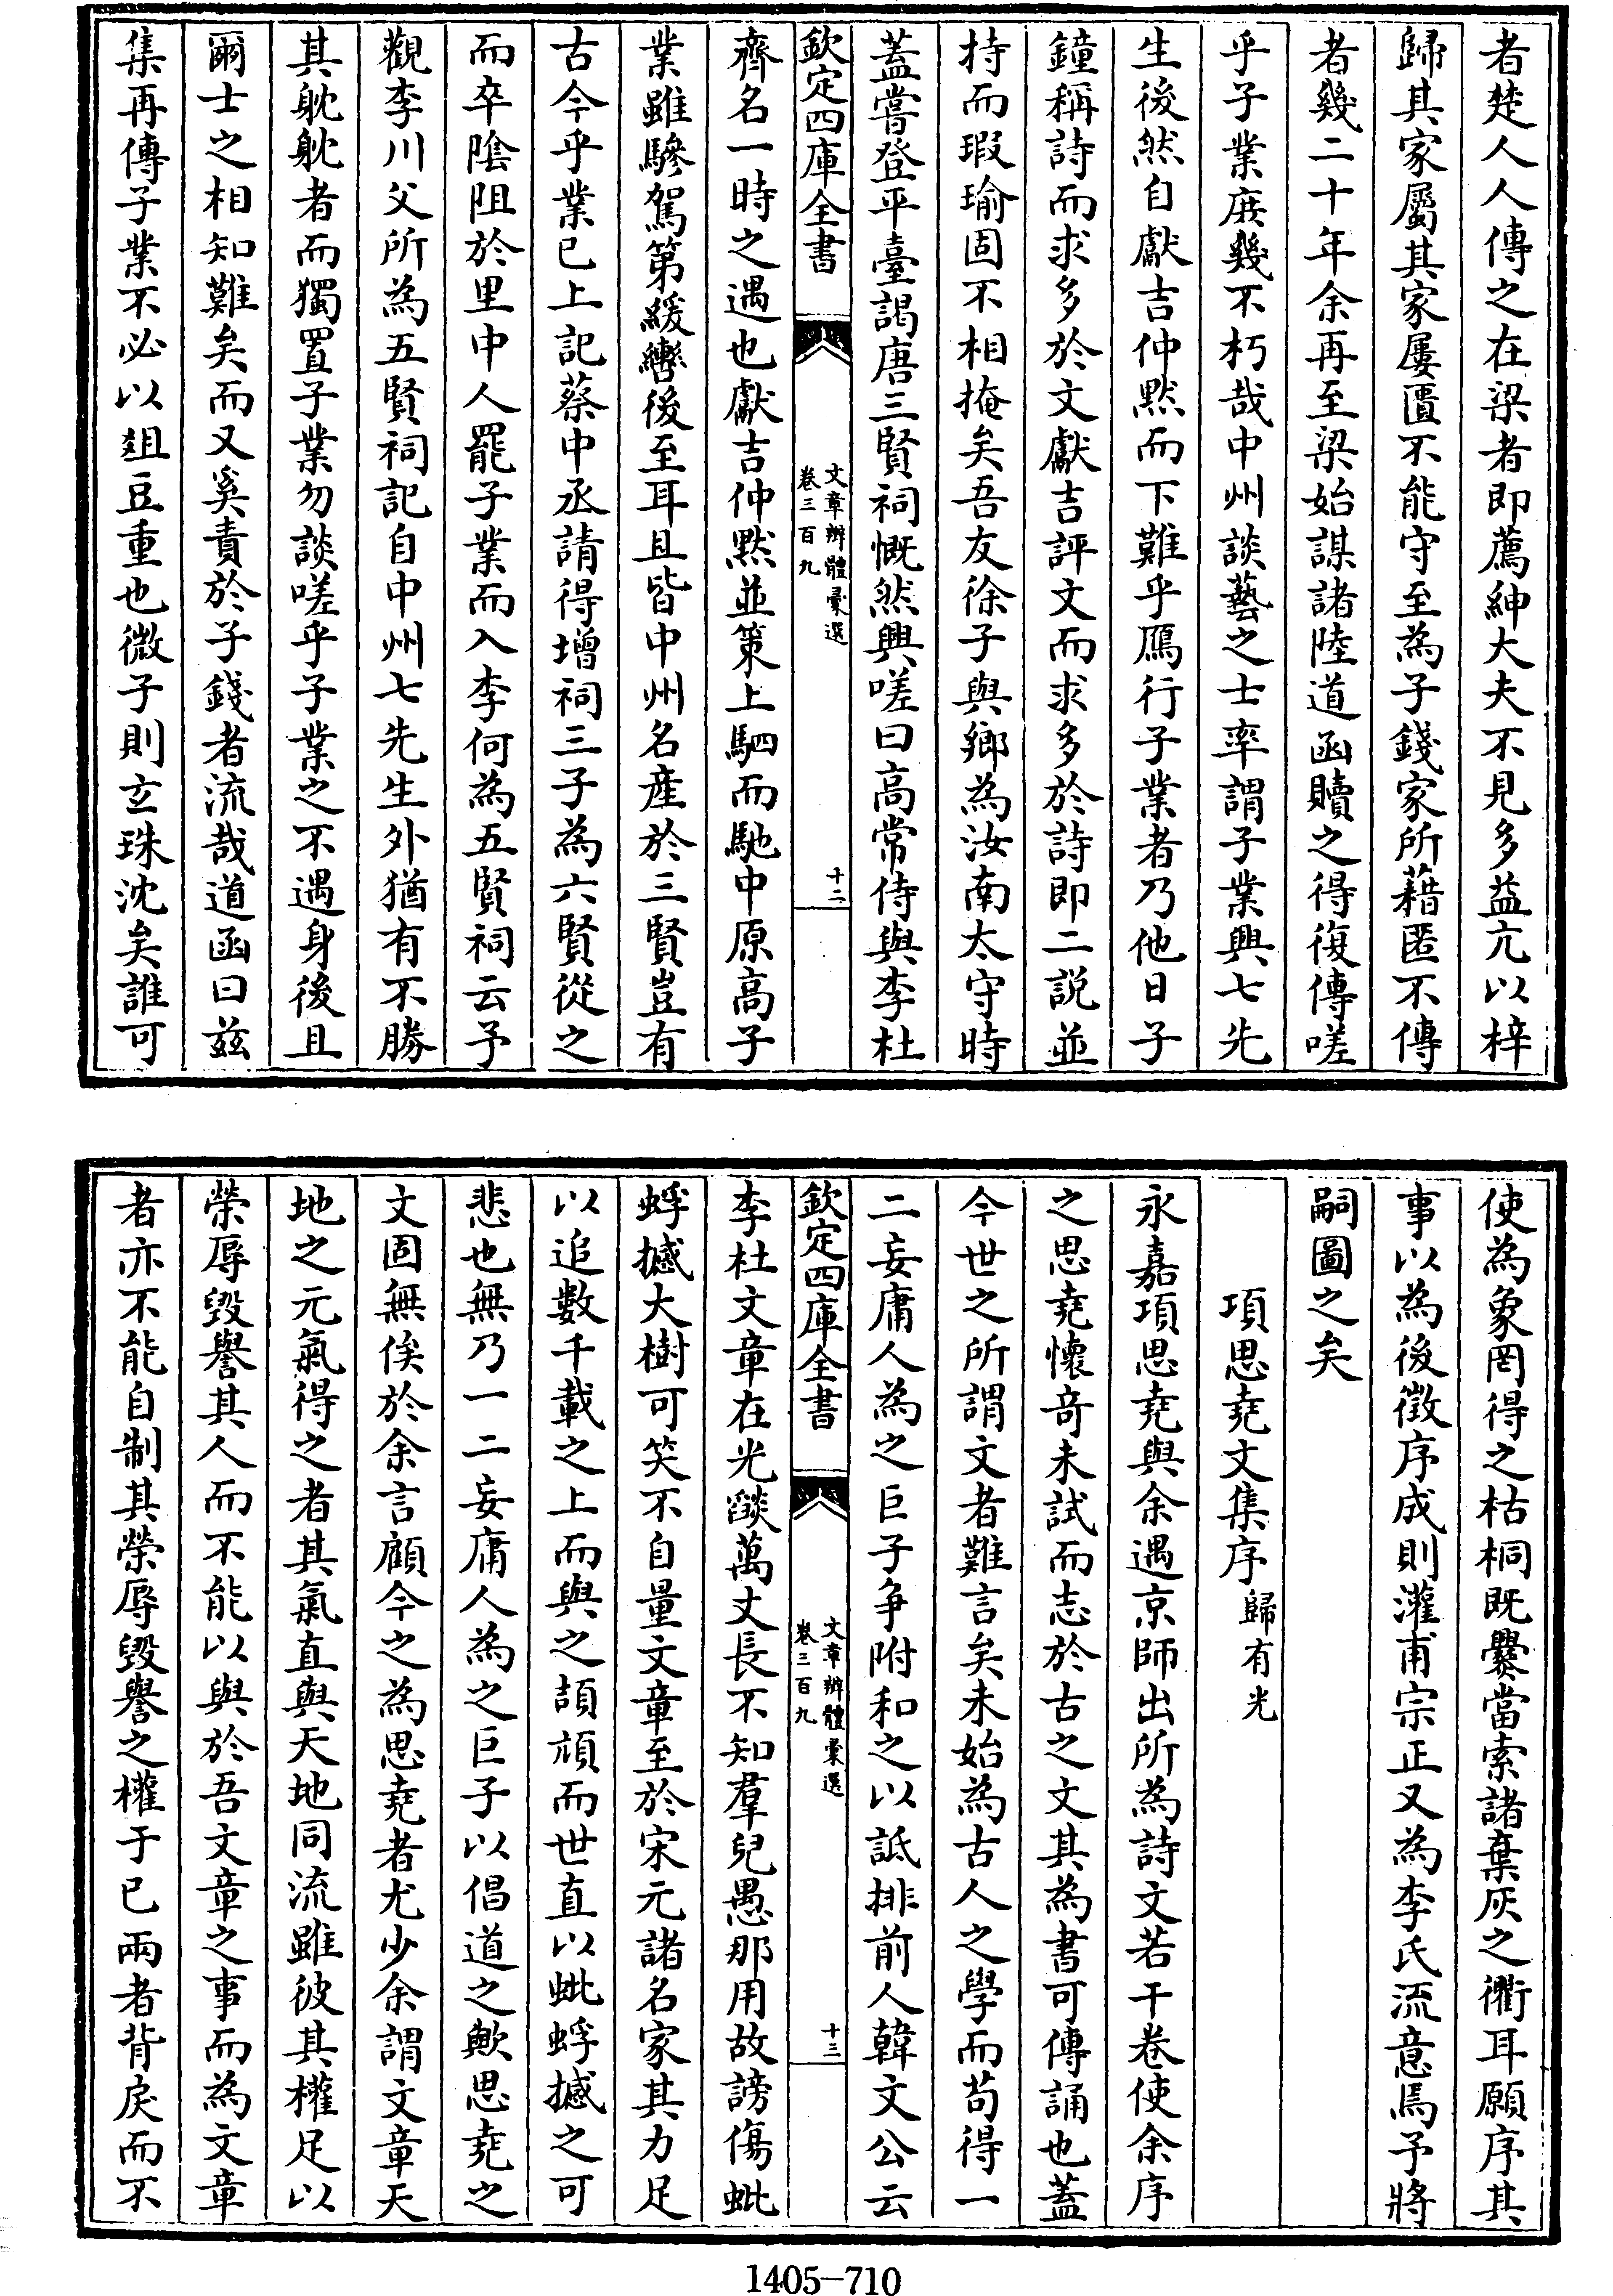 者楚人人傳之在梁者即薦紳大夫不見多益亢以梓
歸其家屬其家屢匱不能守至為子錢家所藉匿不傳
者幾二十年余再至梁始謀諸陸道函贖之得復傳嗟
乎子業庶幾不朽哉中州談藝之士率謂子業興七先
生後然自獻吉仲黙而下難乎鴈行子業者乃他日子
鐘稱詩而求多於文獻吉評文而求多於詩即二説並
持而瑕瑜固不相掩矣吾友徐子與鄉為汝南太守時
蓋嘗登平臺謁唐三賢祠慨然興嗟曰高常侍與李杜
欽定四庫全書
文章辨體彙選
卷三百九
十二
齊名一時之遇也獻吉仲黙並策上駟而馳中原高子
業雖驂駕第緩轡後至耳且皆中州名産於三賢豈有
古今乎業已上記蔡中丞請得增祠三子為六賢從之
而卒陰阻於里中人罷子業而入李何為五賢祠云予
觀李川父所為五賢祠記自中州七先生外猶有不勝
其躭躭者而獨置子業勿談嗟乎子業之不遇身後且
爾士之相知難矣而又奚責於子錢者流哉道函曰兹
集再傳子業不必以俎豆重也微子則玄珠沈矣誰可
使為象罔得之枯桐既爨當索諸棄灰之衢耳願序其
事以為後徴序成則灌甫宗正又為李氏流意焉予將
嗣圖之矣
項思堯文集序 歸有光
永嘉項思堯與余遇京師出所為詩文若干卷使余序
之思堯懷竒未試而志於古之文其為書可傳誦也蓋
今世之所謂文者難言矣未始為古人之學而茍得一
二妄庸人為之巨子争附和之以詆排前人韓文公云
欽定四庫全書
文章辨體彙選
卷三百九
十三
李杜文章在光燄萬丈長不知羣兒愚那用故謗傷蚍
蜉撼大樹可笑不自量文章至於宋元諸名家其力足
以追數千載之上而與之頡頏而世直以蚍蜉撼之可
悲也無乃一二妄庸人為之巨子以倡道之歟思堯之
文固無俟於余言顧今之為思堯者尤少余謂文章天
地之元氣得之者其氣直與天地同流雖彼其權足以
榮辱毀譽其人而不能以與於吾文章之事而為文章
者亦不能自制其榮辱毀譽之權于已兩者背戾而不
1405—710